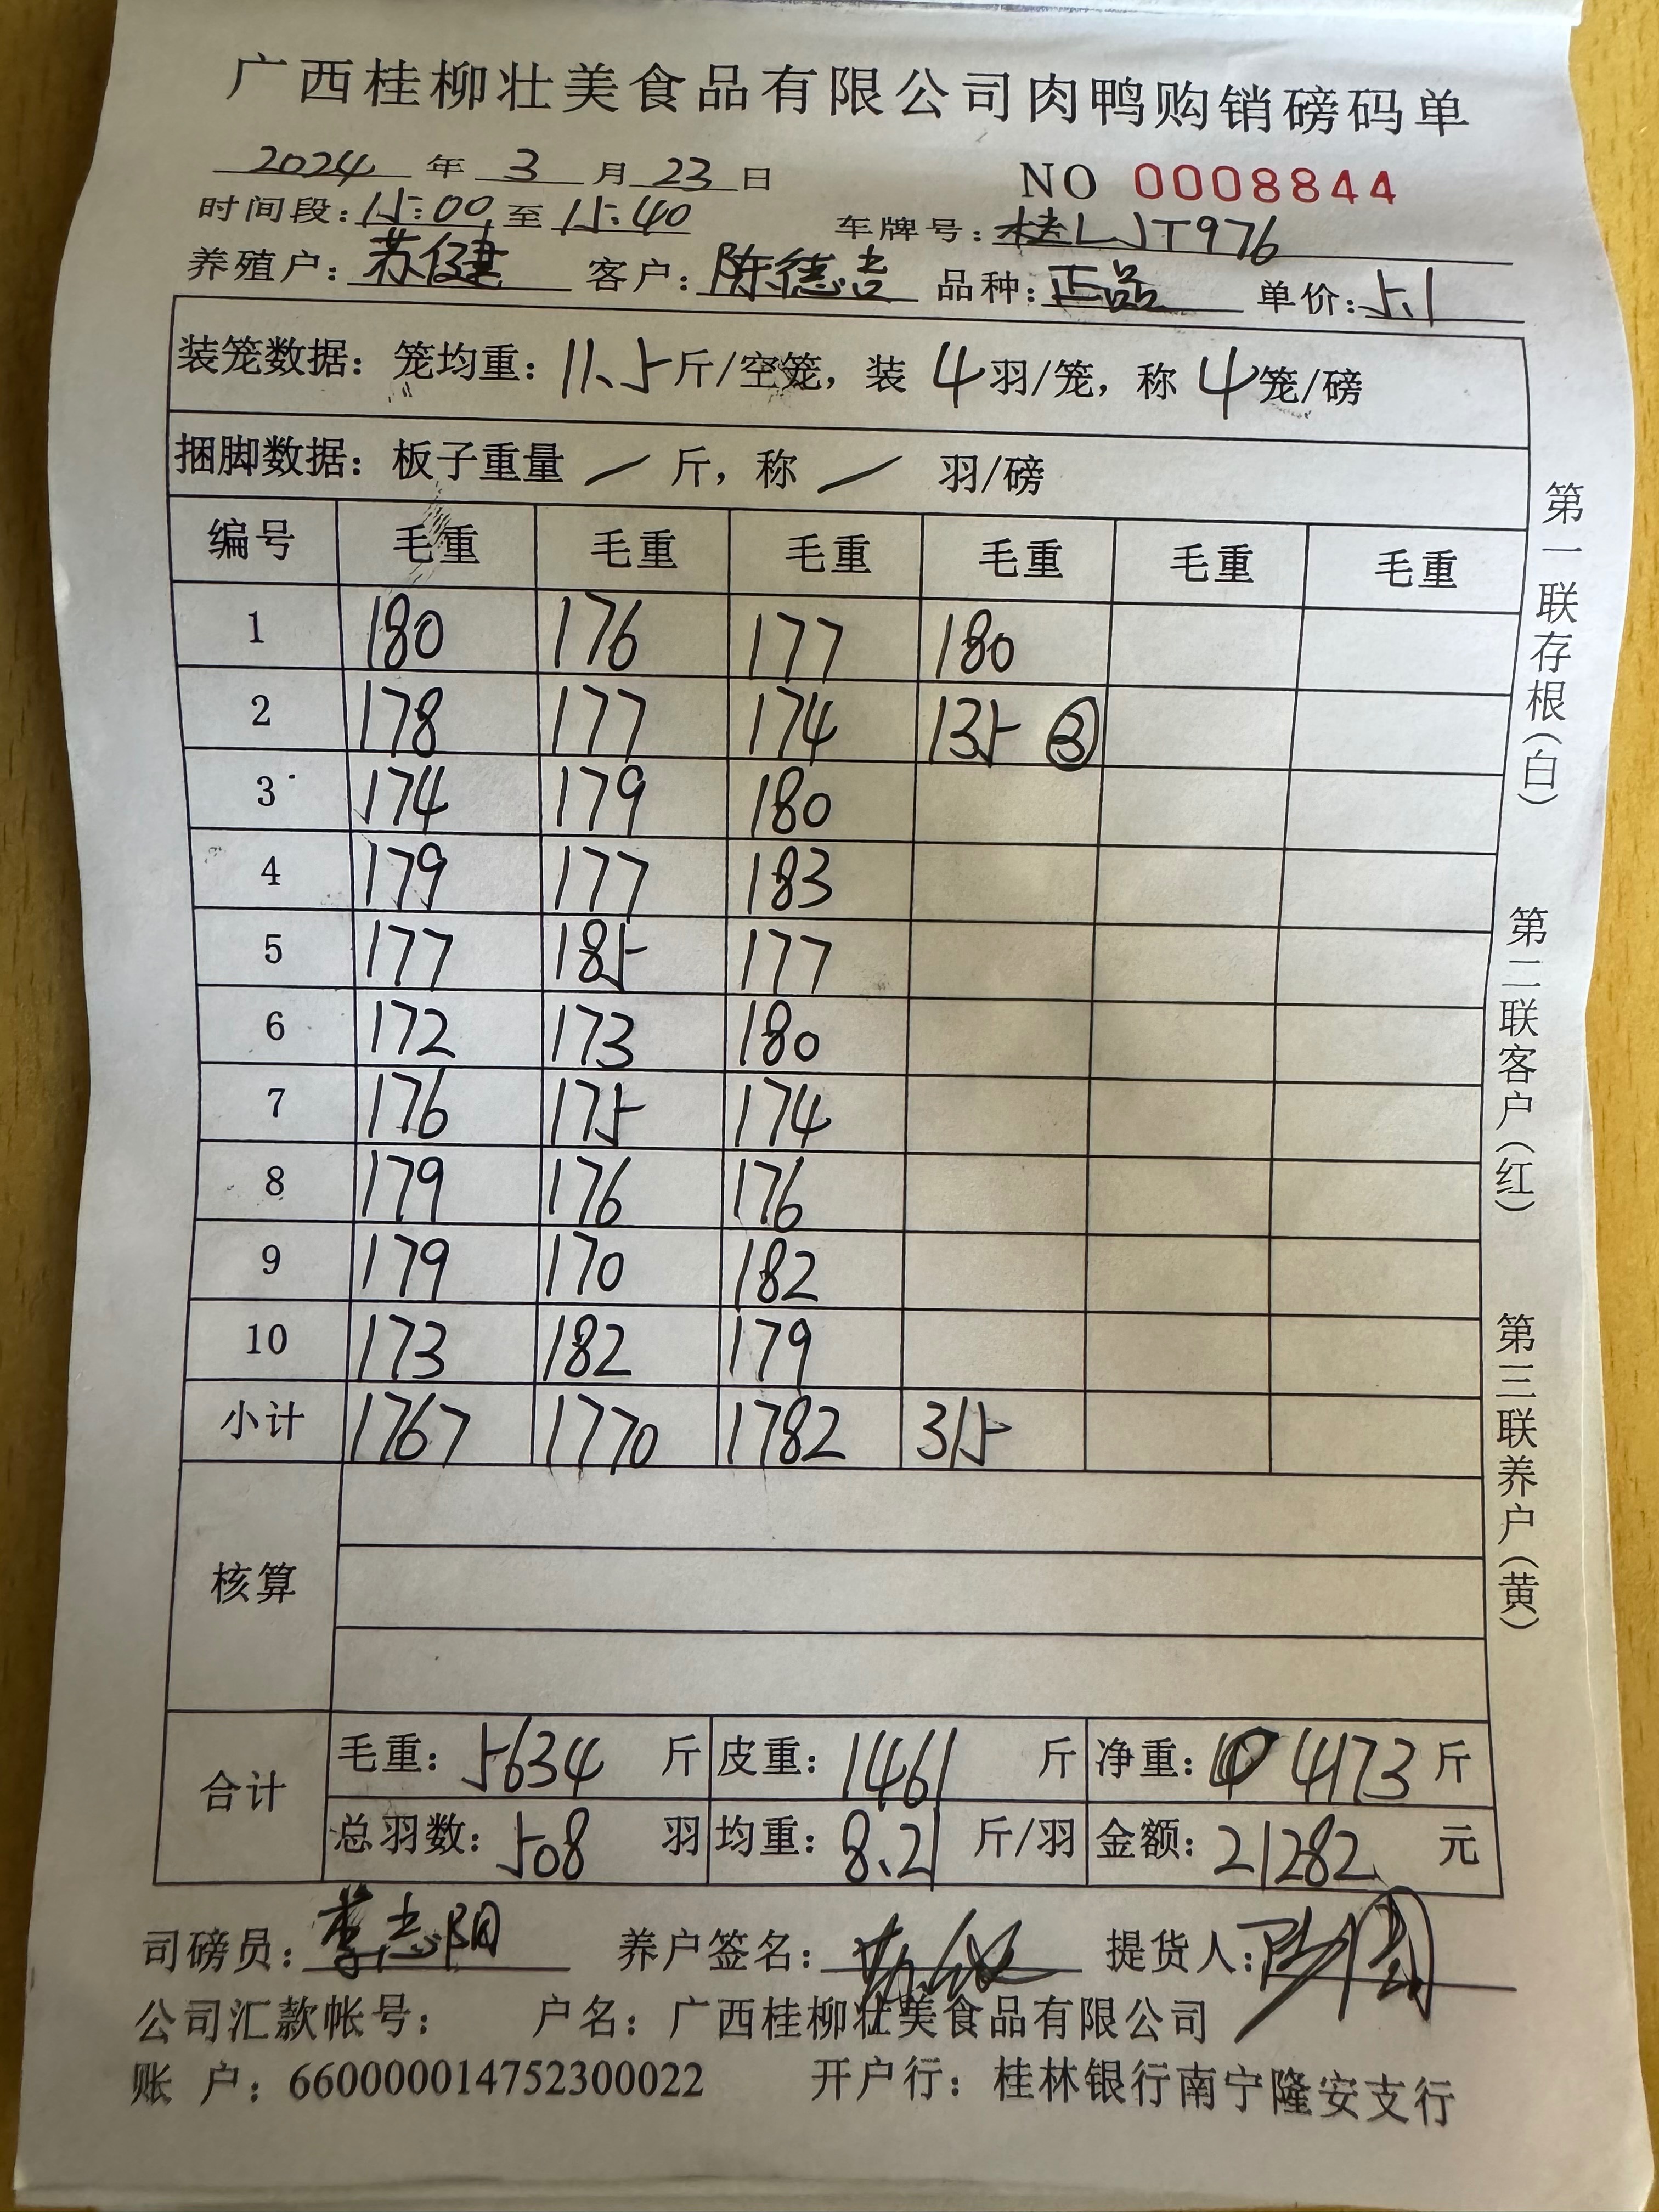 广西桂柳壮美食品有限公司肉鸭购销磅码单
2024 年 3 月 23 日 NO 0008844
时间段：15:00 至 15:40 车牌号：桂LJT976
养殖户：苏健 客户：陈德吉 品种：正品 单价：5.1
装笼数据：笼均重：11.5 斤/空笼，装 4 羽/笼，称 4 笼/磅
捆脚数据：板子重量 / 斤，称 / 羽/磅
编号 毛重 毛重 毛重 毛重 毛重 毛重
1 180 176 177 180
2 178 177 174 135 ③
3 174 179 180
4 179 177 183
5 177 185 177
6 172 173 180
7 176 175 174
8 179 176 176
9 179 170 182
10 173 182 179
小计 1767 1770 1782 315
核算
合计 毛重：5634 斤 皮重：1461 斤 净重：4173 斤
总羽数：508 羽 均重：8.21 斤/羽 金额：21282 元
司磅员：李志阳 养户签名： 提货人：
公司汇款帐号： 户名：广西桂柳壮美食品有限公司
账 户：660000014752300022 开户行：桂林银行南宁隆安支行
第一联存根（白）
第二联客户（红）
第三联养户（黄）